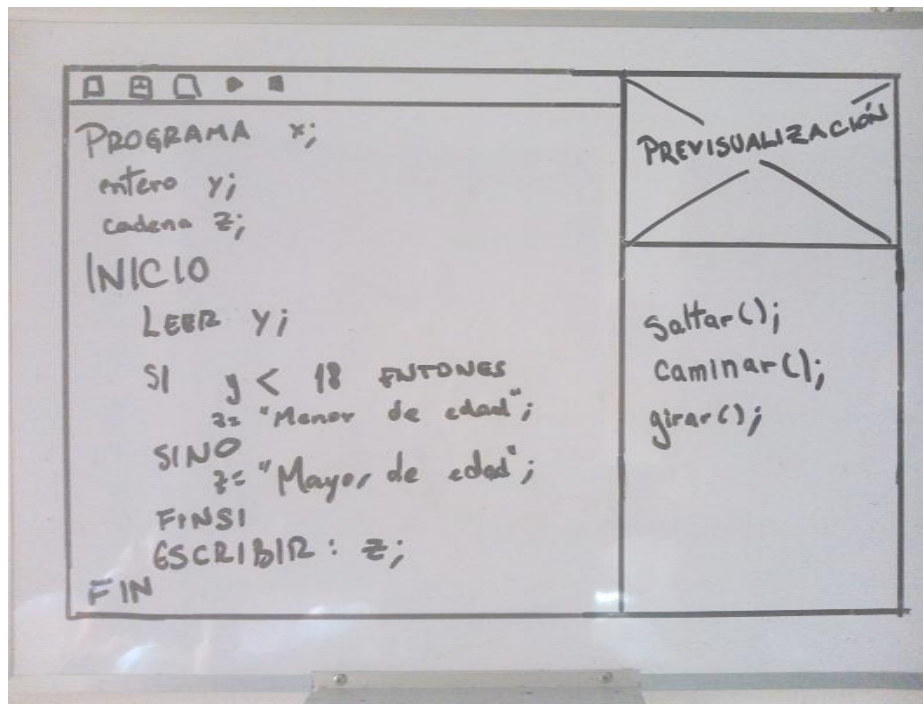 PROGRAMA x;
entero y;
cadena z;
INICIO
LEER y;
SI y < 18 ENTONES
z= "Menor de edad";
SINO
z= "Mayor de edad";
FINSI
ESCRIBIR: z;
FIN
PREVISUALIZACIÓN
Saltar();
Caminar();
girar();